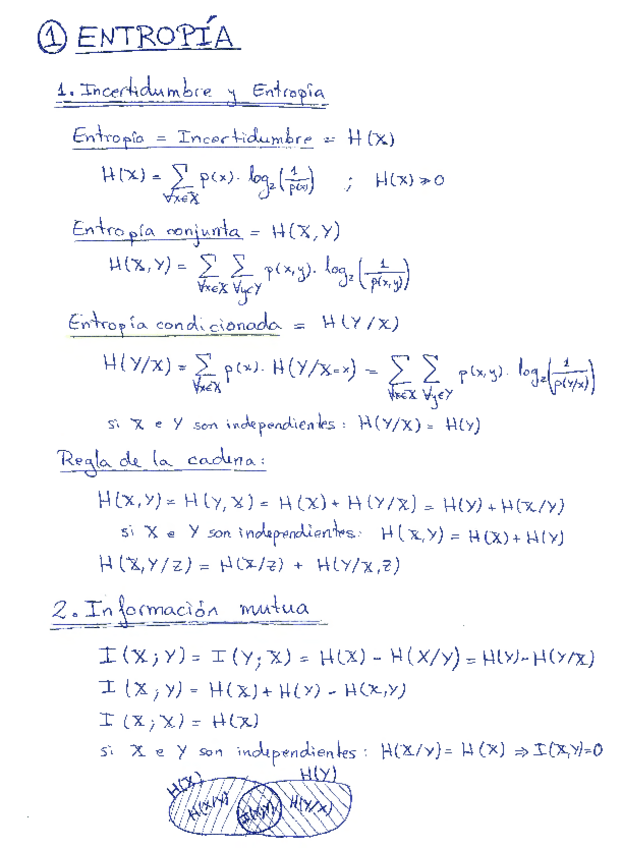 ① ENTROPÍA
1. Incertidumbre y Entropía
Entropía = Incertidumbre = H(X)
H(X) = ∑∀x∈X p(x) · log₂(1/p(x)) ; H(X) ≥ 0
Entropía conjunta = H(X,Y)
H(X,Y) = ∑∀x∈X ∑∀y∈Y p(x,y) · log₂(1/p(x,y))
Entropía condicionada = H(Y/X)
H(Y/X) = ∑∀x∈X p(x) · H(Y/X=x) = ∑∀x∈X ∑∀y∈Y p(x,y) · log₂(1/p(y/x))
si X e Y son independientes: H(Y/X) = H(Y)
Regla de la cadena:
H(X,Y) = H(Y,X) = H(X) + H(Y/X) = H(Y) + H(X/Y)
si X e Y son independientes: H(X,Y) = H(X) + H(Y)
H(X,Y/Z) = H(X/Z) + H(Y/X,Z)
2. Información mutua
I(X;Y) = I(Y;X) = H(X) - H(X/Y) = H(Y) - H(Y/X)
I(X;Y) = H(X) + H(Y) - H(X,Y)
I(X;X) = H(X)
si X e Y son independientes: H(X/Y) = H(X) ⇒ I(X,Y)=0
H(X) H(Y)
H(X/Y) I(X;Y) H(Y/X)